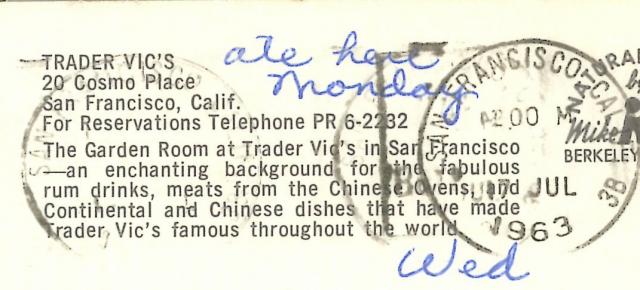 ate here
Monday
TRADER VIC'S
20 Cosmo Place
San Francisco, Calif.
For Reservations Telephone PR 6-2232
The Garden Room at Trader Vic's in San Francisco
—an enchanting background for the fabulous
rum drinks, meats from the Chinese Ovens, and
Continental and Chinese dishes that have made
Trader Vic's famous throughout the world.
Wed
SAN FRANCISCO, CA
00
17 JUL
1963
3B
NATURAL
Mike
BERKELEY